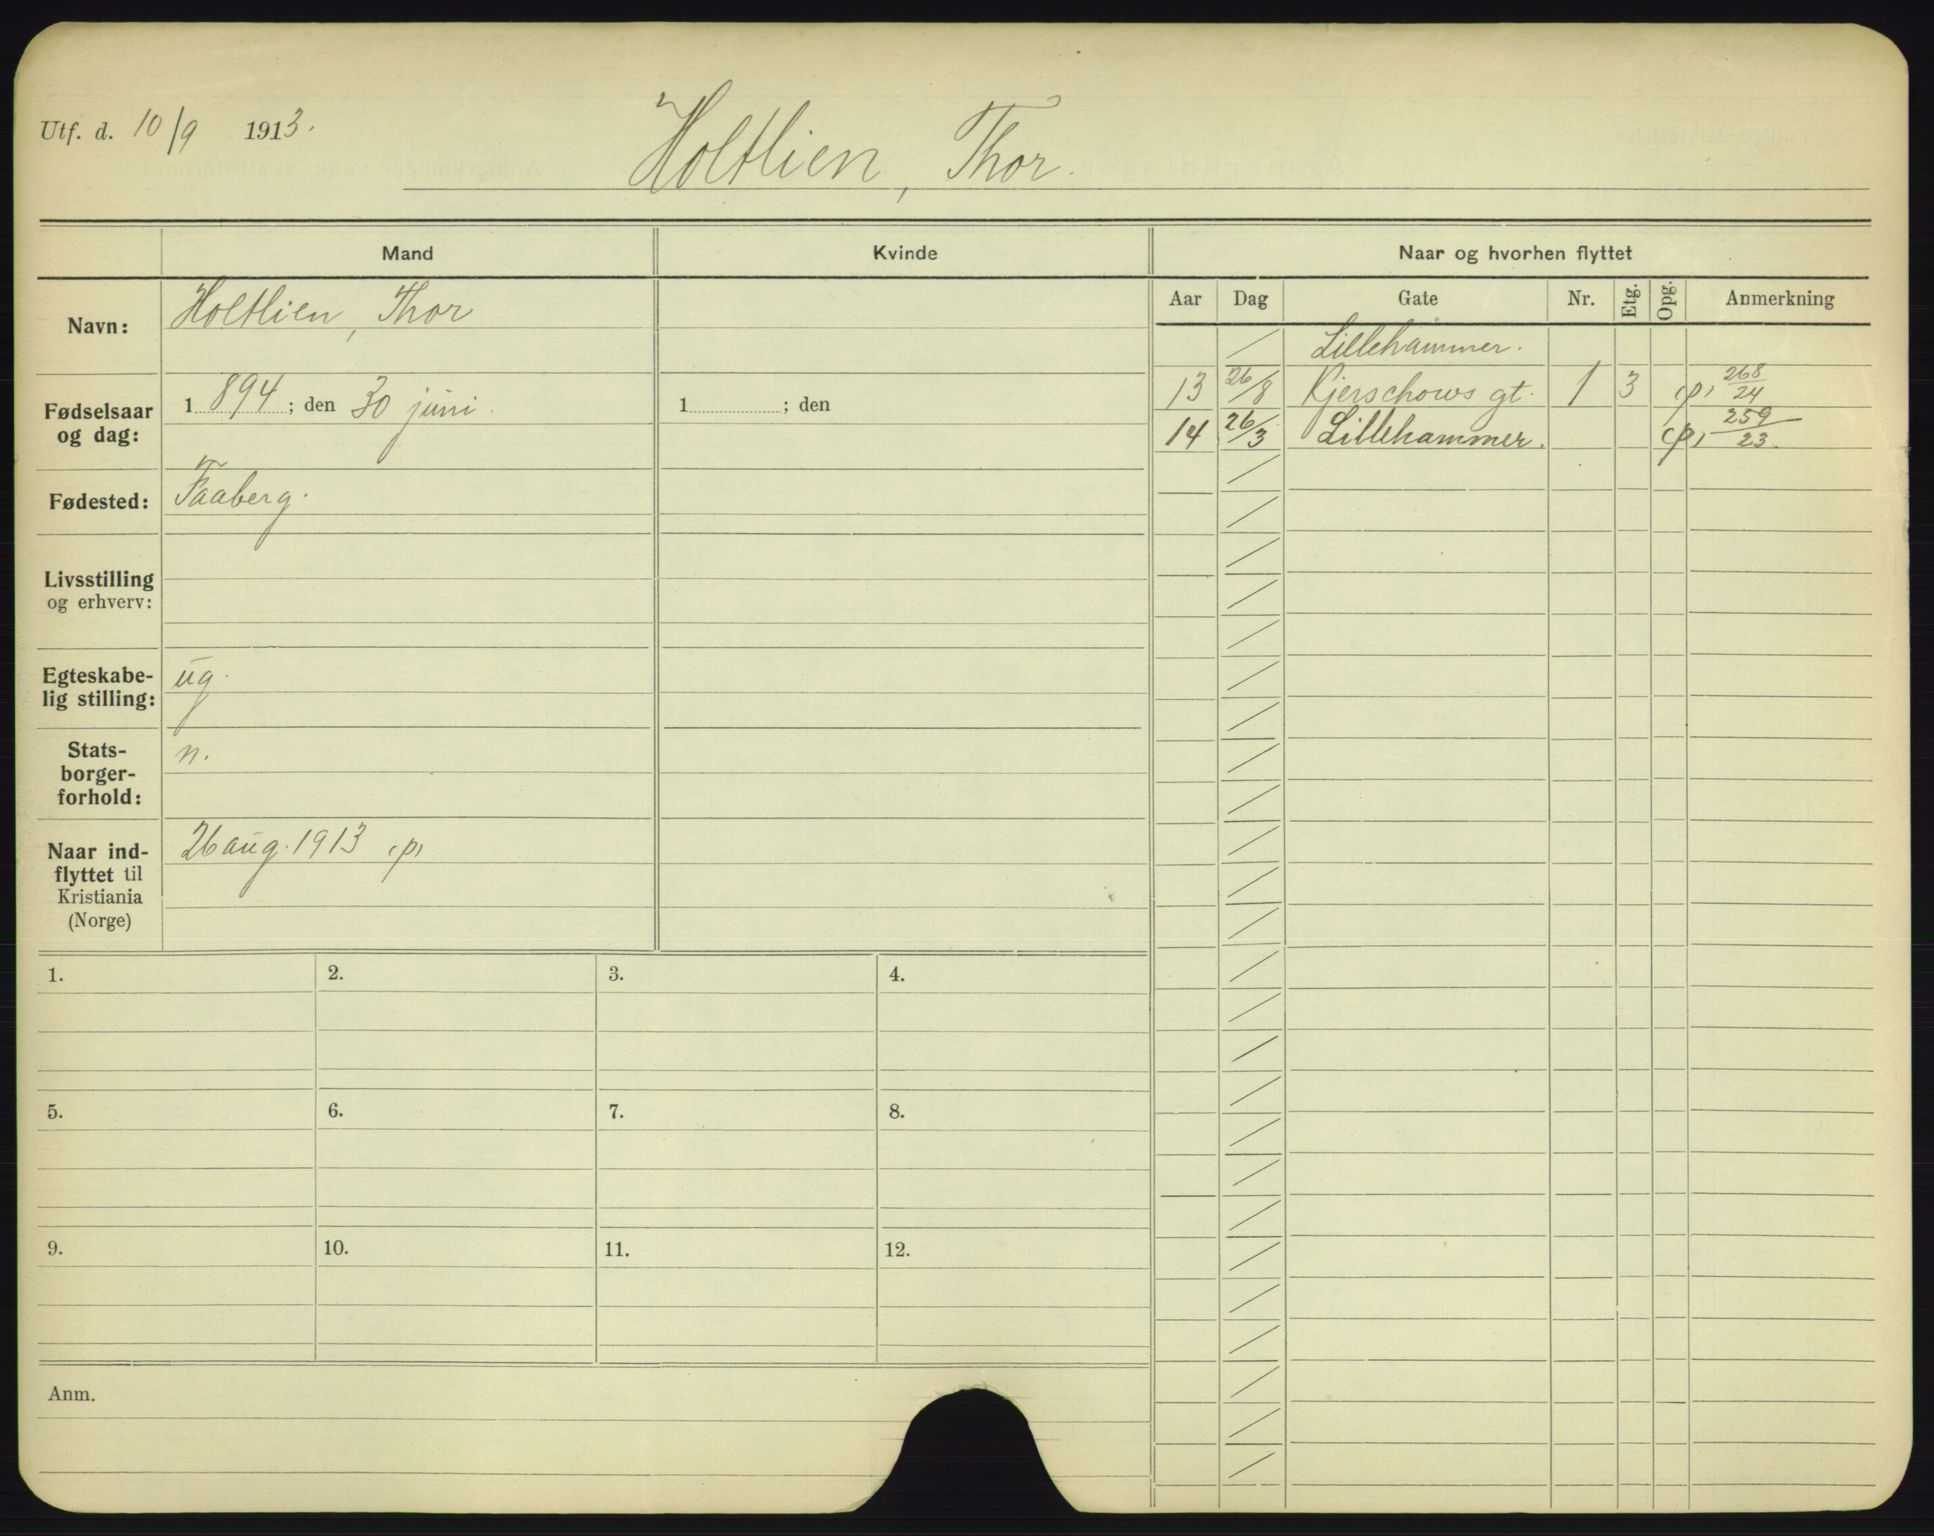 Utf. d. 10/9 1913.
Holtlien, Thor.
Mand
Kvinde
Naar og hvorhen flyttet
Aar Dag Gate Nr. Etg. Opg. Anmerkning
Lillehammer.
13 26/8 Kjerschows gt. 1 3 (p) 268/24
14 26/3 Lillehammer. (p) 259/23.
Navn: Holtlien, Thor
Fødselsaar og dag: 1894; den 30 juni. 1 ; den
Fødested: Faaberg.
Livsstilling
og erhverv:
Egteskabe-
lig stilling: ug.
Stats-
borger-
forhold: n.
Naar ind-
flyttet til
Kristiania
(Norge)
26 aug. 1913 (p)
1. 2. 3. 4.
5. 6. 7. 8.
9. 10. 11. 12.
Anm.